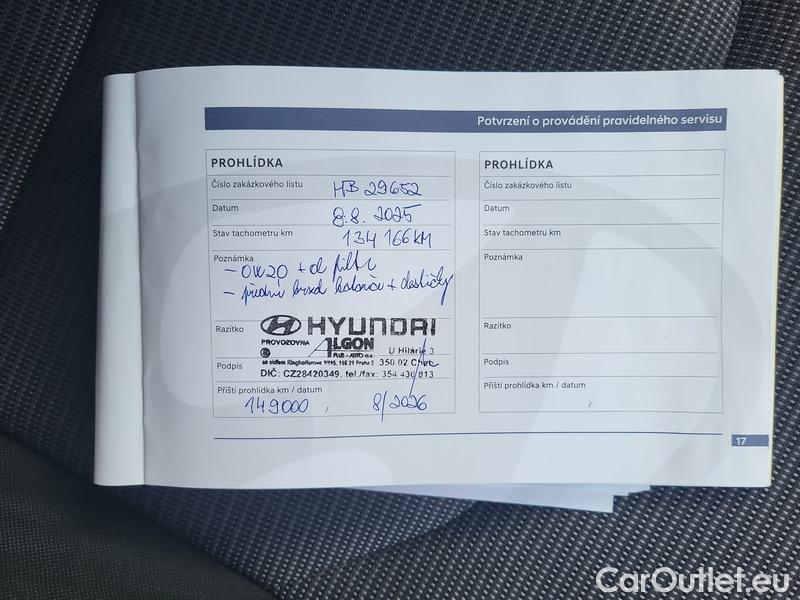 Potvrzení o provádění pravidelného servisu
PROHLÍDKA
Číslo zakázkového listu HB 29652
Datum 8.8.2025
Stav tachometru km 134 166 KM
Poznámka
- 0W20 + ol filtr
- přední brzd kotouče + destičky
Razítko HYUNDAI
PROVOZOVNA ALGON
PLUS - AUTO a.s. U Hilárie 3
se sídlem Ringhofferova 1/115, 155 21 Praha 5 350 02 Cheb
Podpis
DIČ: CZ28420349, tel./fax: 354 430 013
Příští prohlídka km / datum
149000, 8/2026
PROHLÍDKA
Číslo zakázkového listu
Datum
Stav tachometru km
Poznámka
Razítko
Podpis
Příští prohlídka km / datum
/
17
CarOutlet.eu